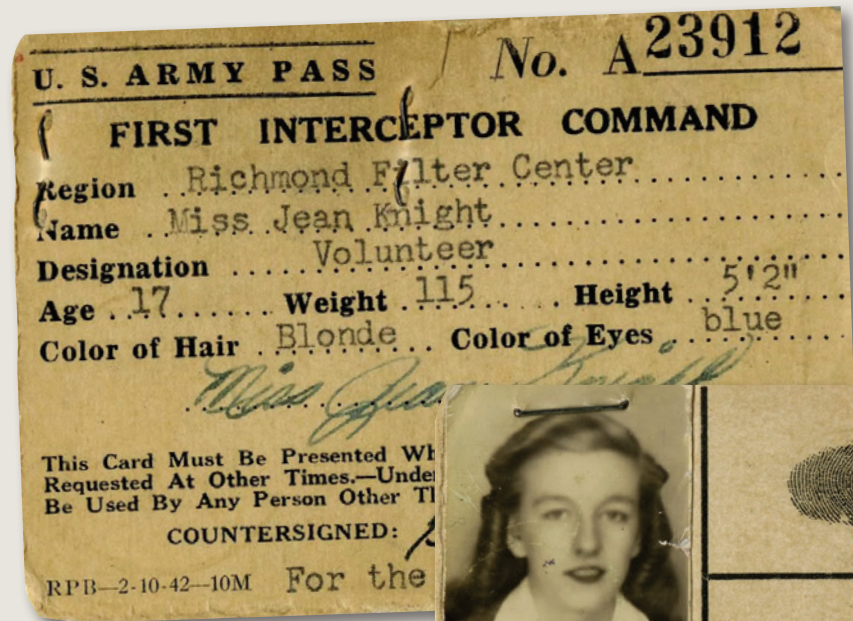 U. S. ARMY PASS No. A23912
FIRST INTERCEPTOR COMMAND
Region Richmond Filter Center
Name Miss Jean Knight
Designation Volunteer
Age 17 Weight 115 Height 5'2"
Color of Hair Blonde Color of Eyes blue
Miss Jean Knight
This Card Must Be Presented
Requested At Other Times.—Unde
Be Used By Any Person Other
COUNTERSIGNED:
RPB—2-10-42—10M For the